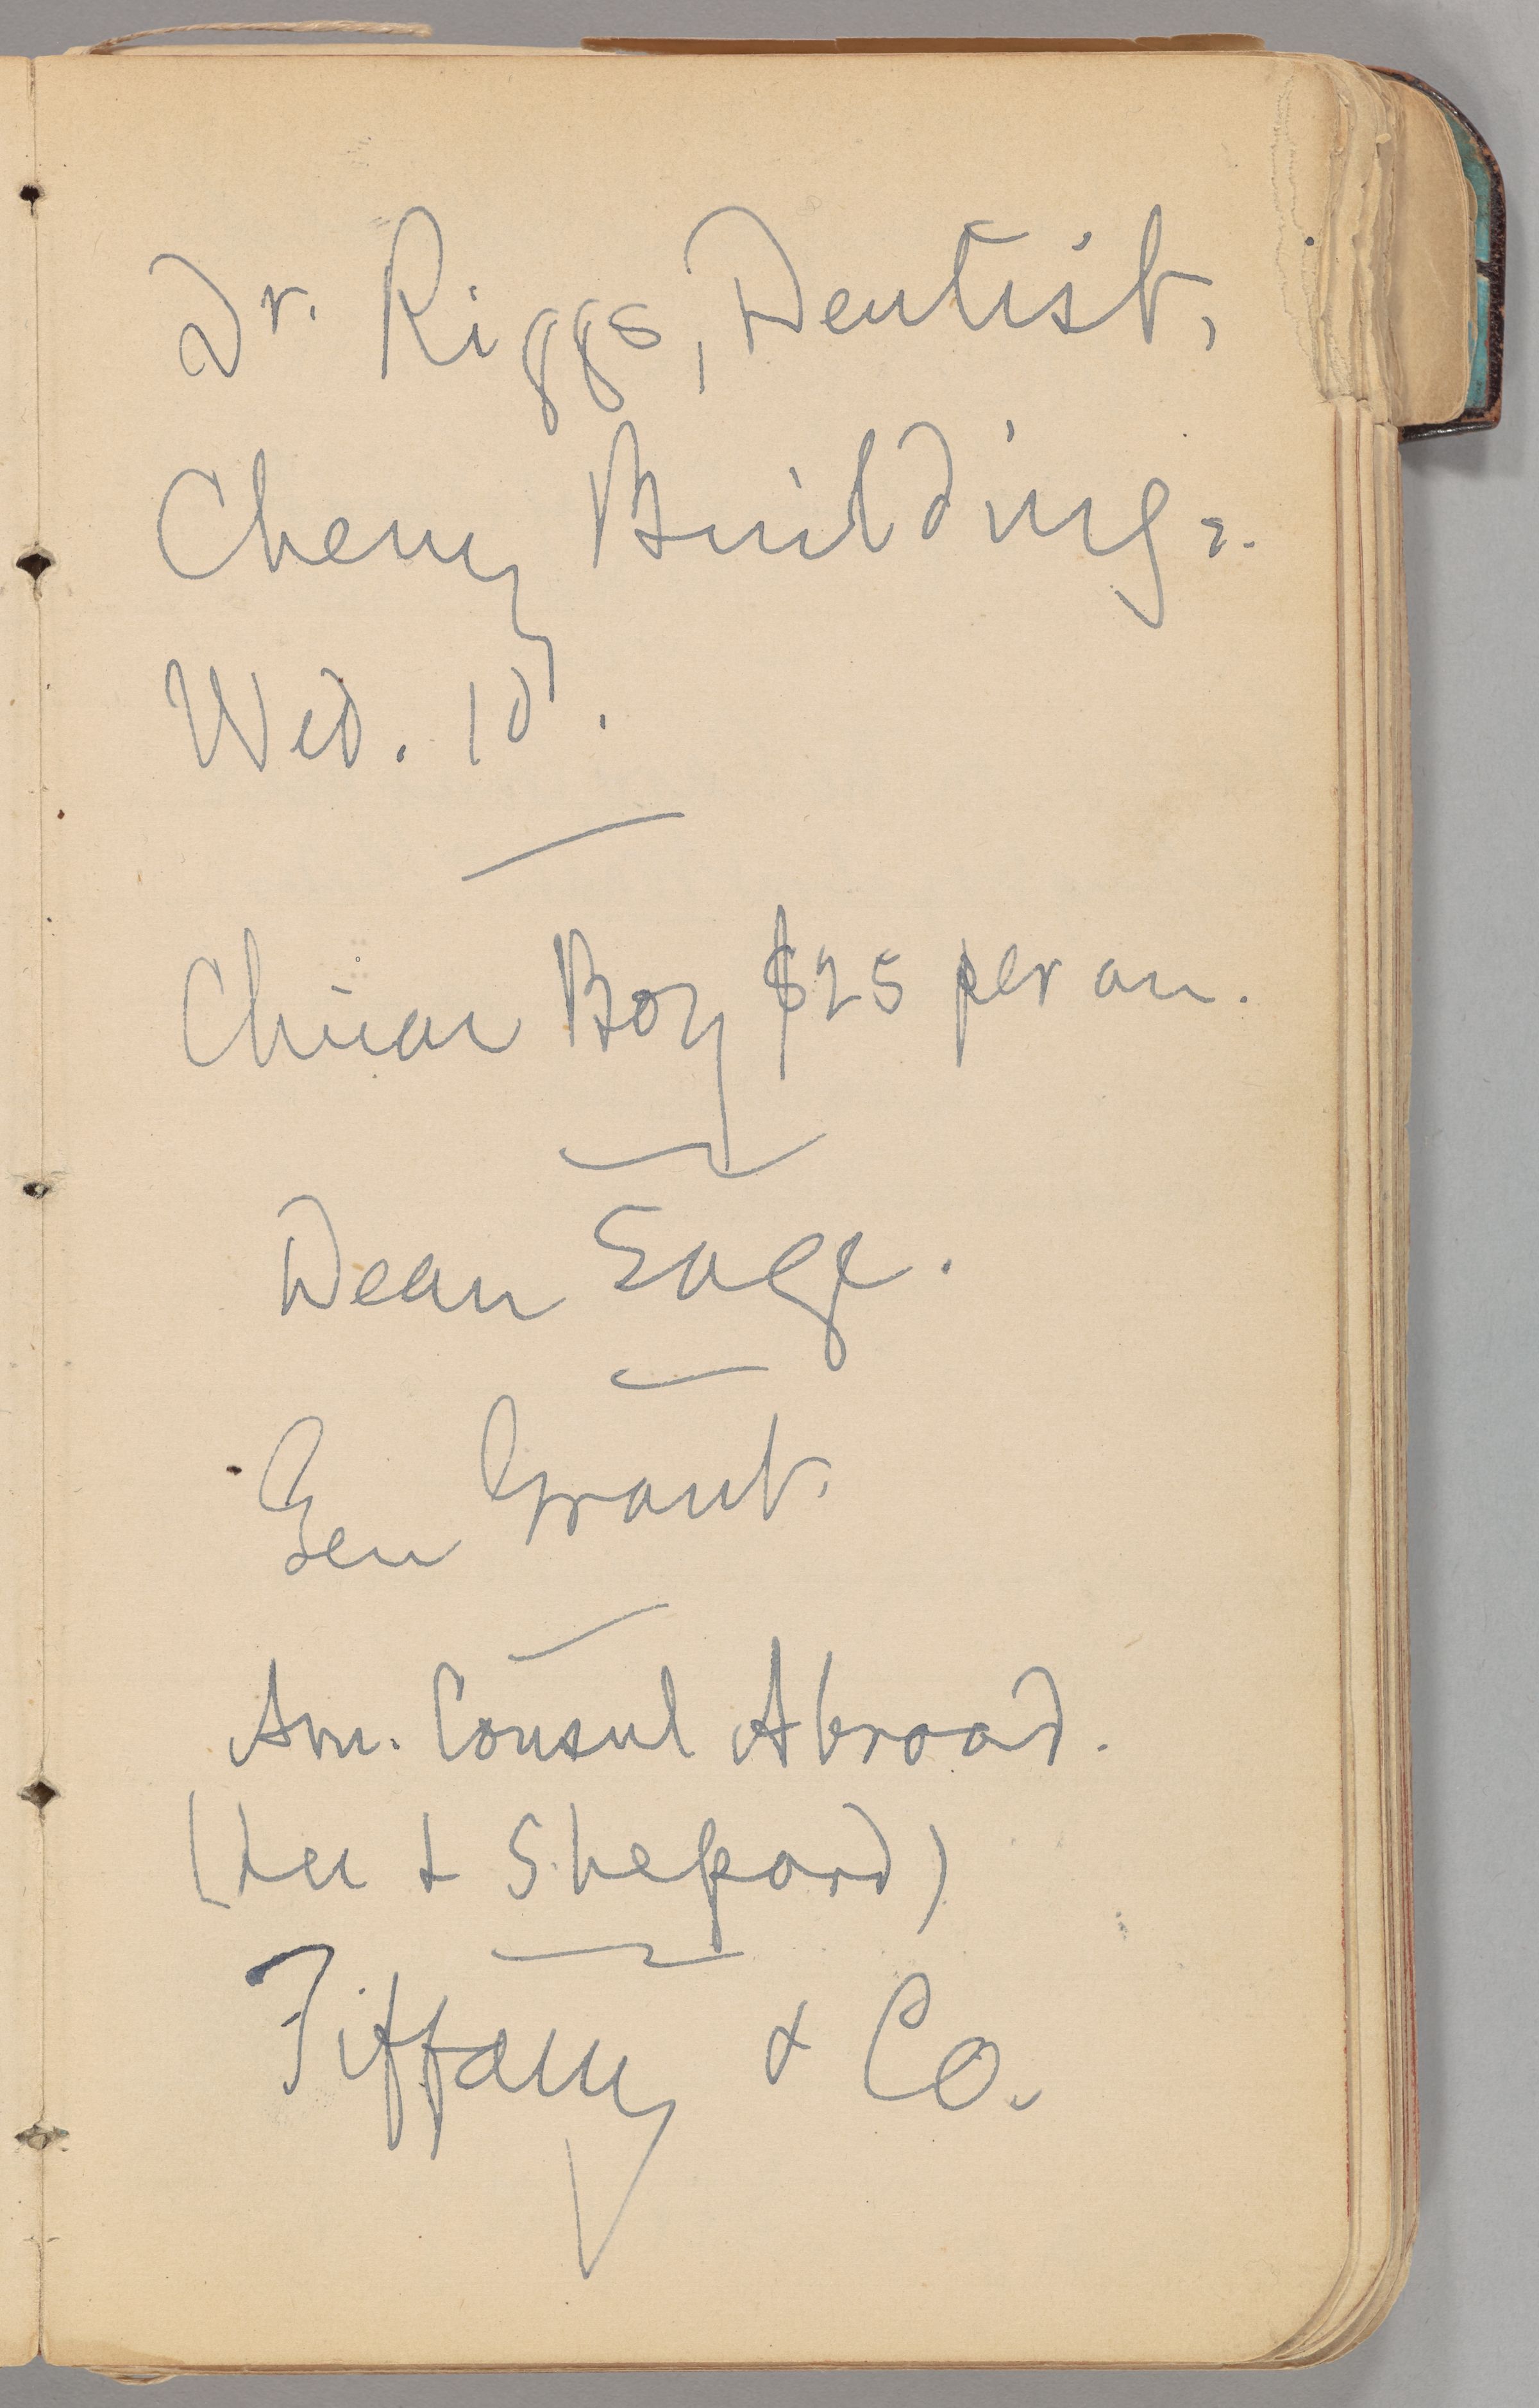 Dr. Riggs, Dentist,
Cheny Building.
Wed. 10.
China Boy $25 per an.
Dean Sage.
Gen Grant.
Am. Consul Abroad.
(Lee & Shepard)
Tiffany & Co.